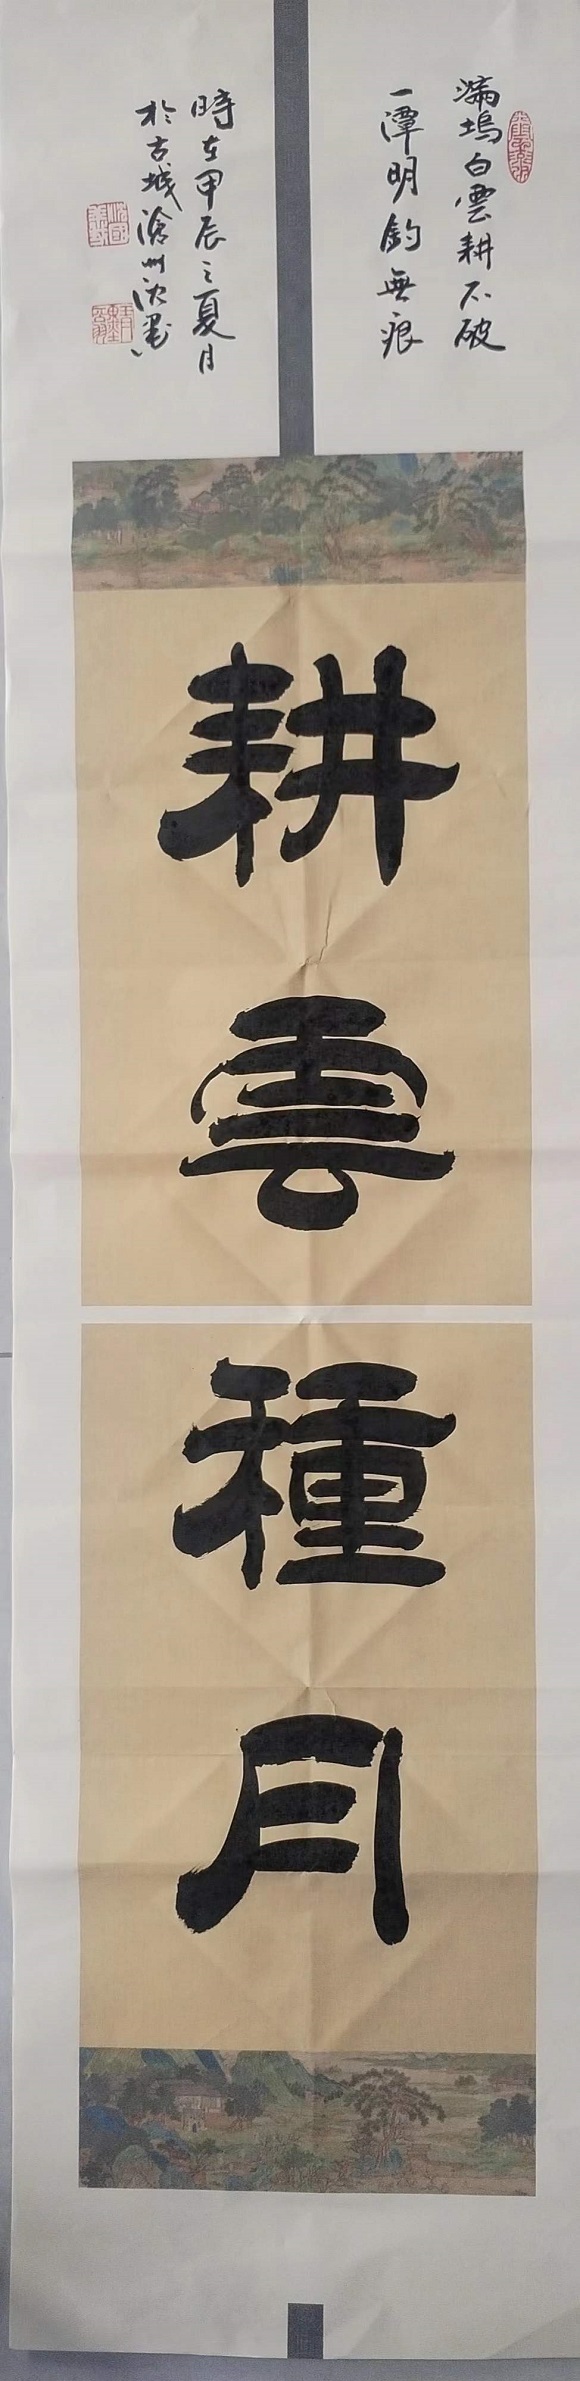 滿塢白雲耕不破
一潭明釣無痕
耕雲種月
時在甲辰之夏月
於古城滄州沈